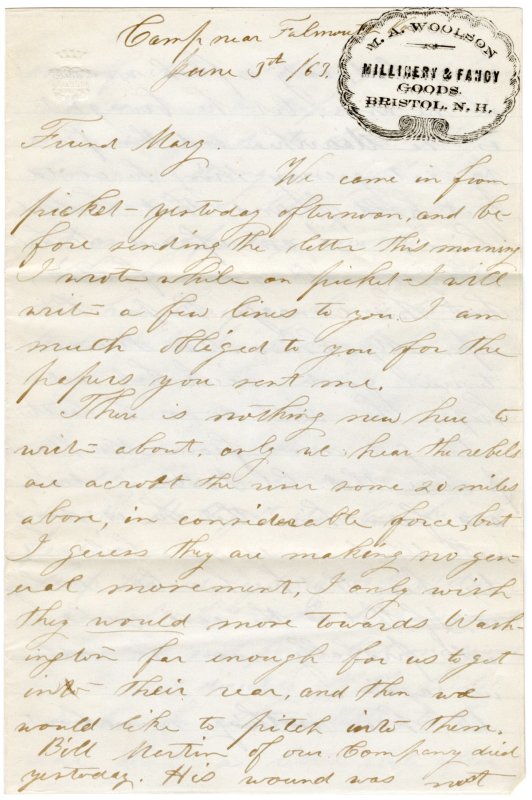 Camp near Falmouth
June 3rd /63.
M. A. WOOLSON
MILLINERY & FANCY
GOODS.
BRISTOL, N. H.
Friend Mary.
We came in from
picket- yestoday afternoon, and be-
fore sending the letter this morning
I wrote while on picket- I will
writ- a few lines to you. I am
much obliged to you for the
papers you sent me.
There is nothing new here to
writ- about, only we hear the rebels
are across the river some 20 miles
above, in considerable force, but
I geuess they are making no gen-
eral movement, I only wish
they would move towards Wash-
ington far enough for us to get
into their rear, and then we
would like to pitch into them.
Bill Martin of our Company died
yestoday. His wound was not